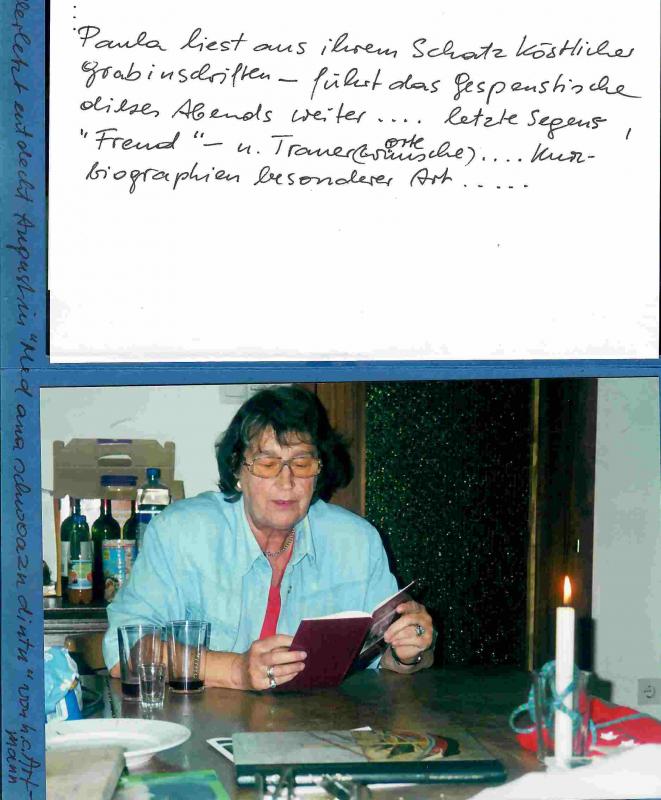 Paula liest aus ihrem Schatz köstlicher
Grabinschriften – führt das Gespenstische
dieses Abends weiter .... letzte Segens,
"Freud"– u. Trauer(wünsche).... Kurz-
orte
biographien besonderer Art .....
allerletzt entdeckt August in "Med ana schwoazzn dintn" von h.c. Art-
mann